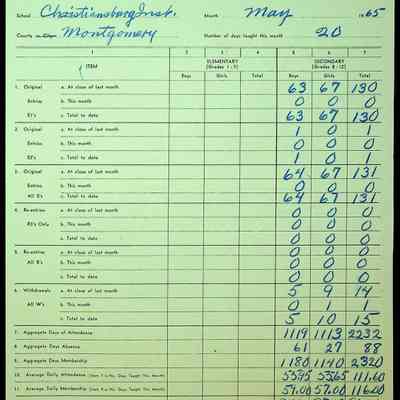 School Christiansburg Inst. Month May 1965
County or City Montgomery Number of days taught this month 20
1 2 3 4 5 6 7
ITEM ELEMENTARY (Grades 1-7) SECONDARY (Grades 8-12)
Boys Girls Total Boys Girls Total
1. Original a. At close of last month 63 67 130
Entries b. This month 0 0 0
E1's c. Total to date 63 67 130
2. Original a. At close of last month 1 0 1
Entries b. This month 0 0 0
E2's c. Total to date 1 0 1
3. Original a. At close of last month 64 67 131
Entries b. This month 0 0 0
All E's c. Total to date 64 67 131
4. Re-entries a. At close of last month 0 0 0
R3's Only b. This month 0 0 0
c. Total to date 0 0 0
5. Re-entries a. At close of last month 0 0 0
All R's b. This month 0 0 0
c. Total to date 0 0 0
6. Withdrawals a. At close of last month 5 9 14
All W's b. This month 0 1 1
c. Total to date 5 10 15
7. Aggregate Days of Attendance 1119 1113 2232
8. Aggregate Days Absence 61 27 88
9. Aggregate Days Membership 1180 1140 2320
10. Average Daily Attendance (Item 7 ÷ No. Days Taught This Month) 55.95 55.65 111.60
11. Average Daily Membership (Item 9 ÷ No. Days Taught This Month) 59.00 57.00 116.00